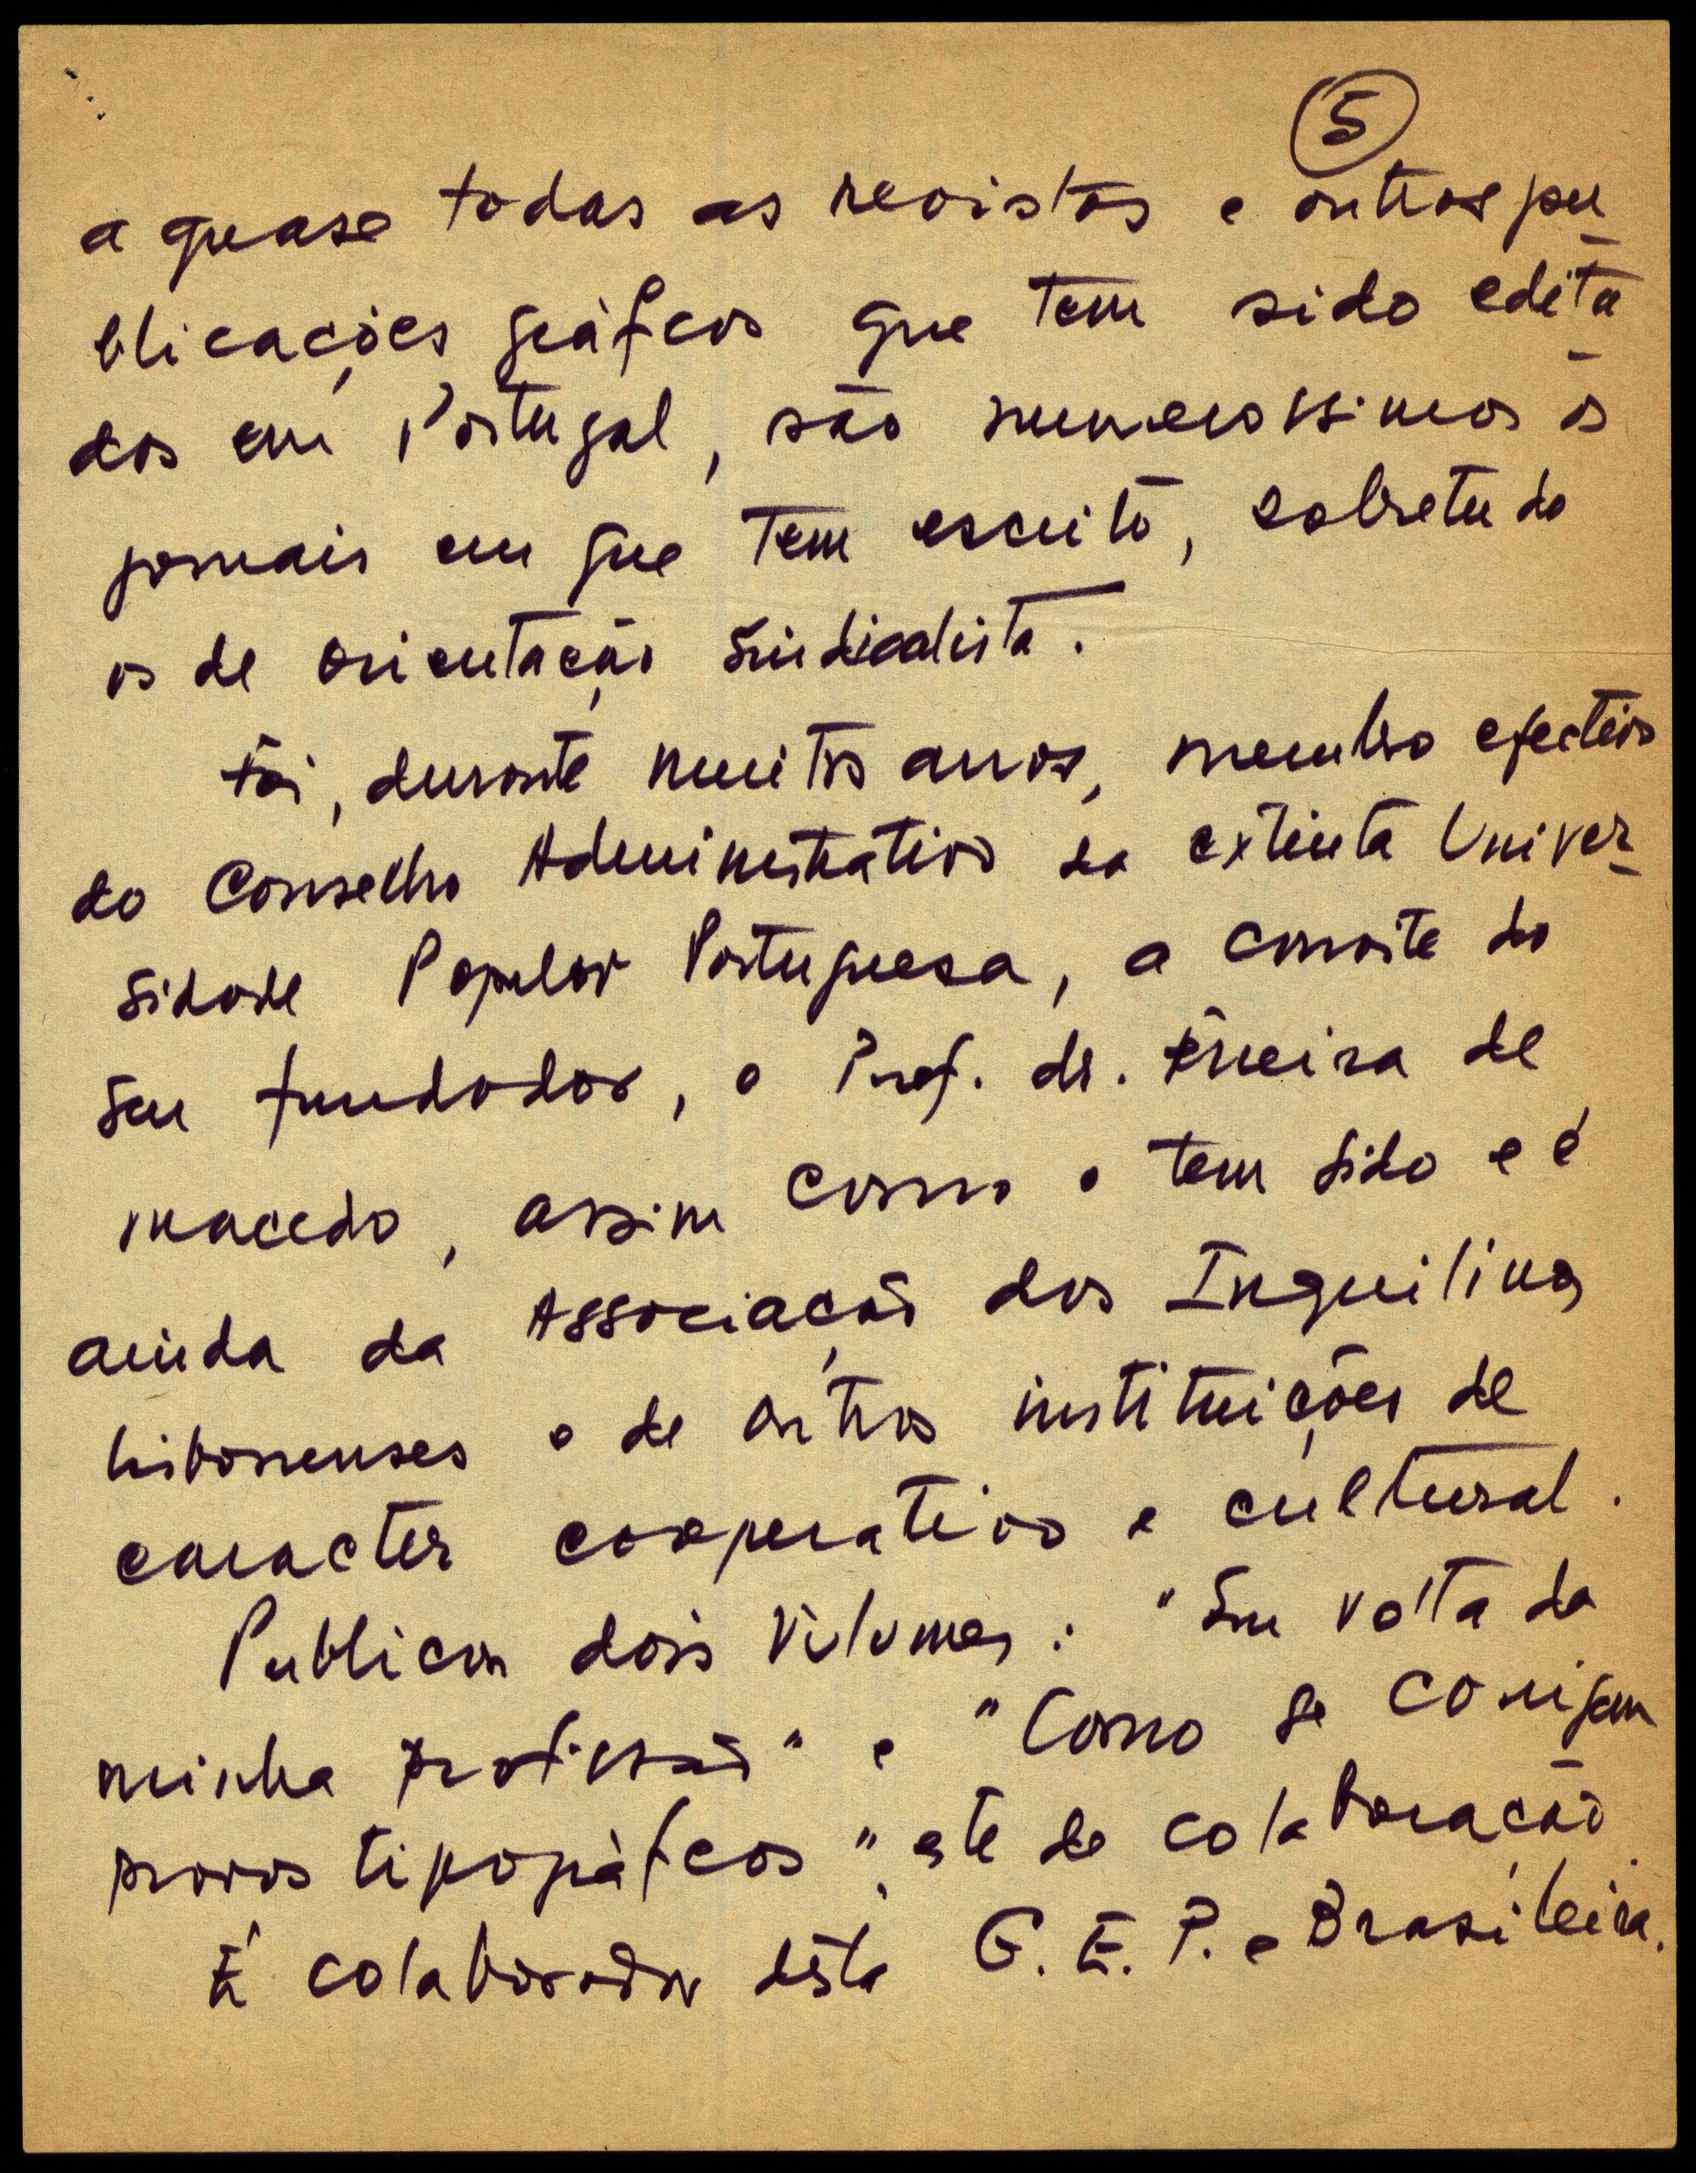 5
a quase todas as revistas e outras pu
blicações gráficas que tem sido edita
dos em Portugal, são numerossimos os
jornais em que tem escrito, sobretudo
os de orientação sindicalista.
Foi, durante muitos anos, membro efectivo
do Conselho Administrativo da extinta Univer-
sidade Popular Portuguesa, a convite do
seu fundador, o Prof. dr. Ferreira de
Macedo, assim como o tem sido e é
ainda da Associação dos Inquilinos
Lisbonenses e de outras instituições de
caracter cooperativo e cultural.
Publicou dois volumes: "Em volta da
minha profissão" e "Como se corrigem
provas tipográficas", este de colaboração.
É colaborador desta G. E. P. e Brasileira.